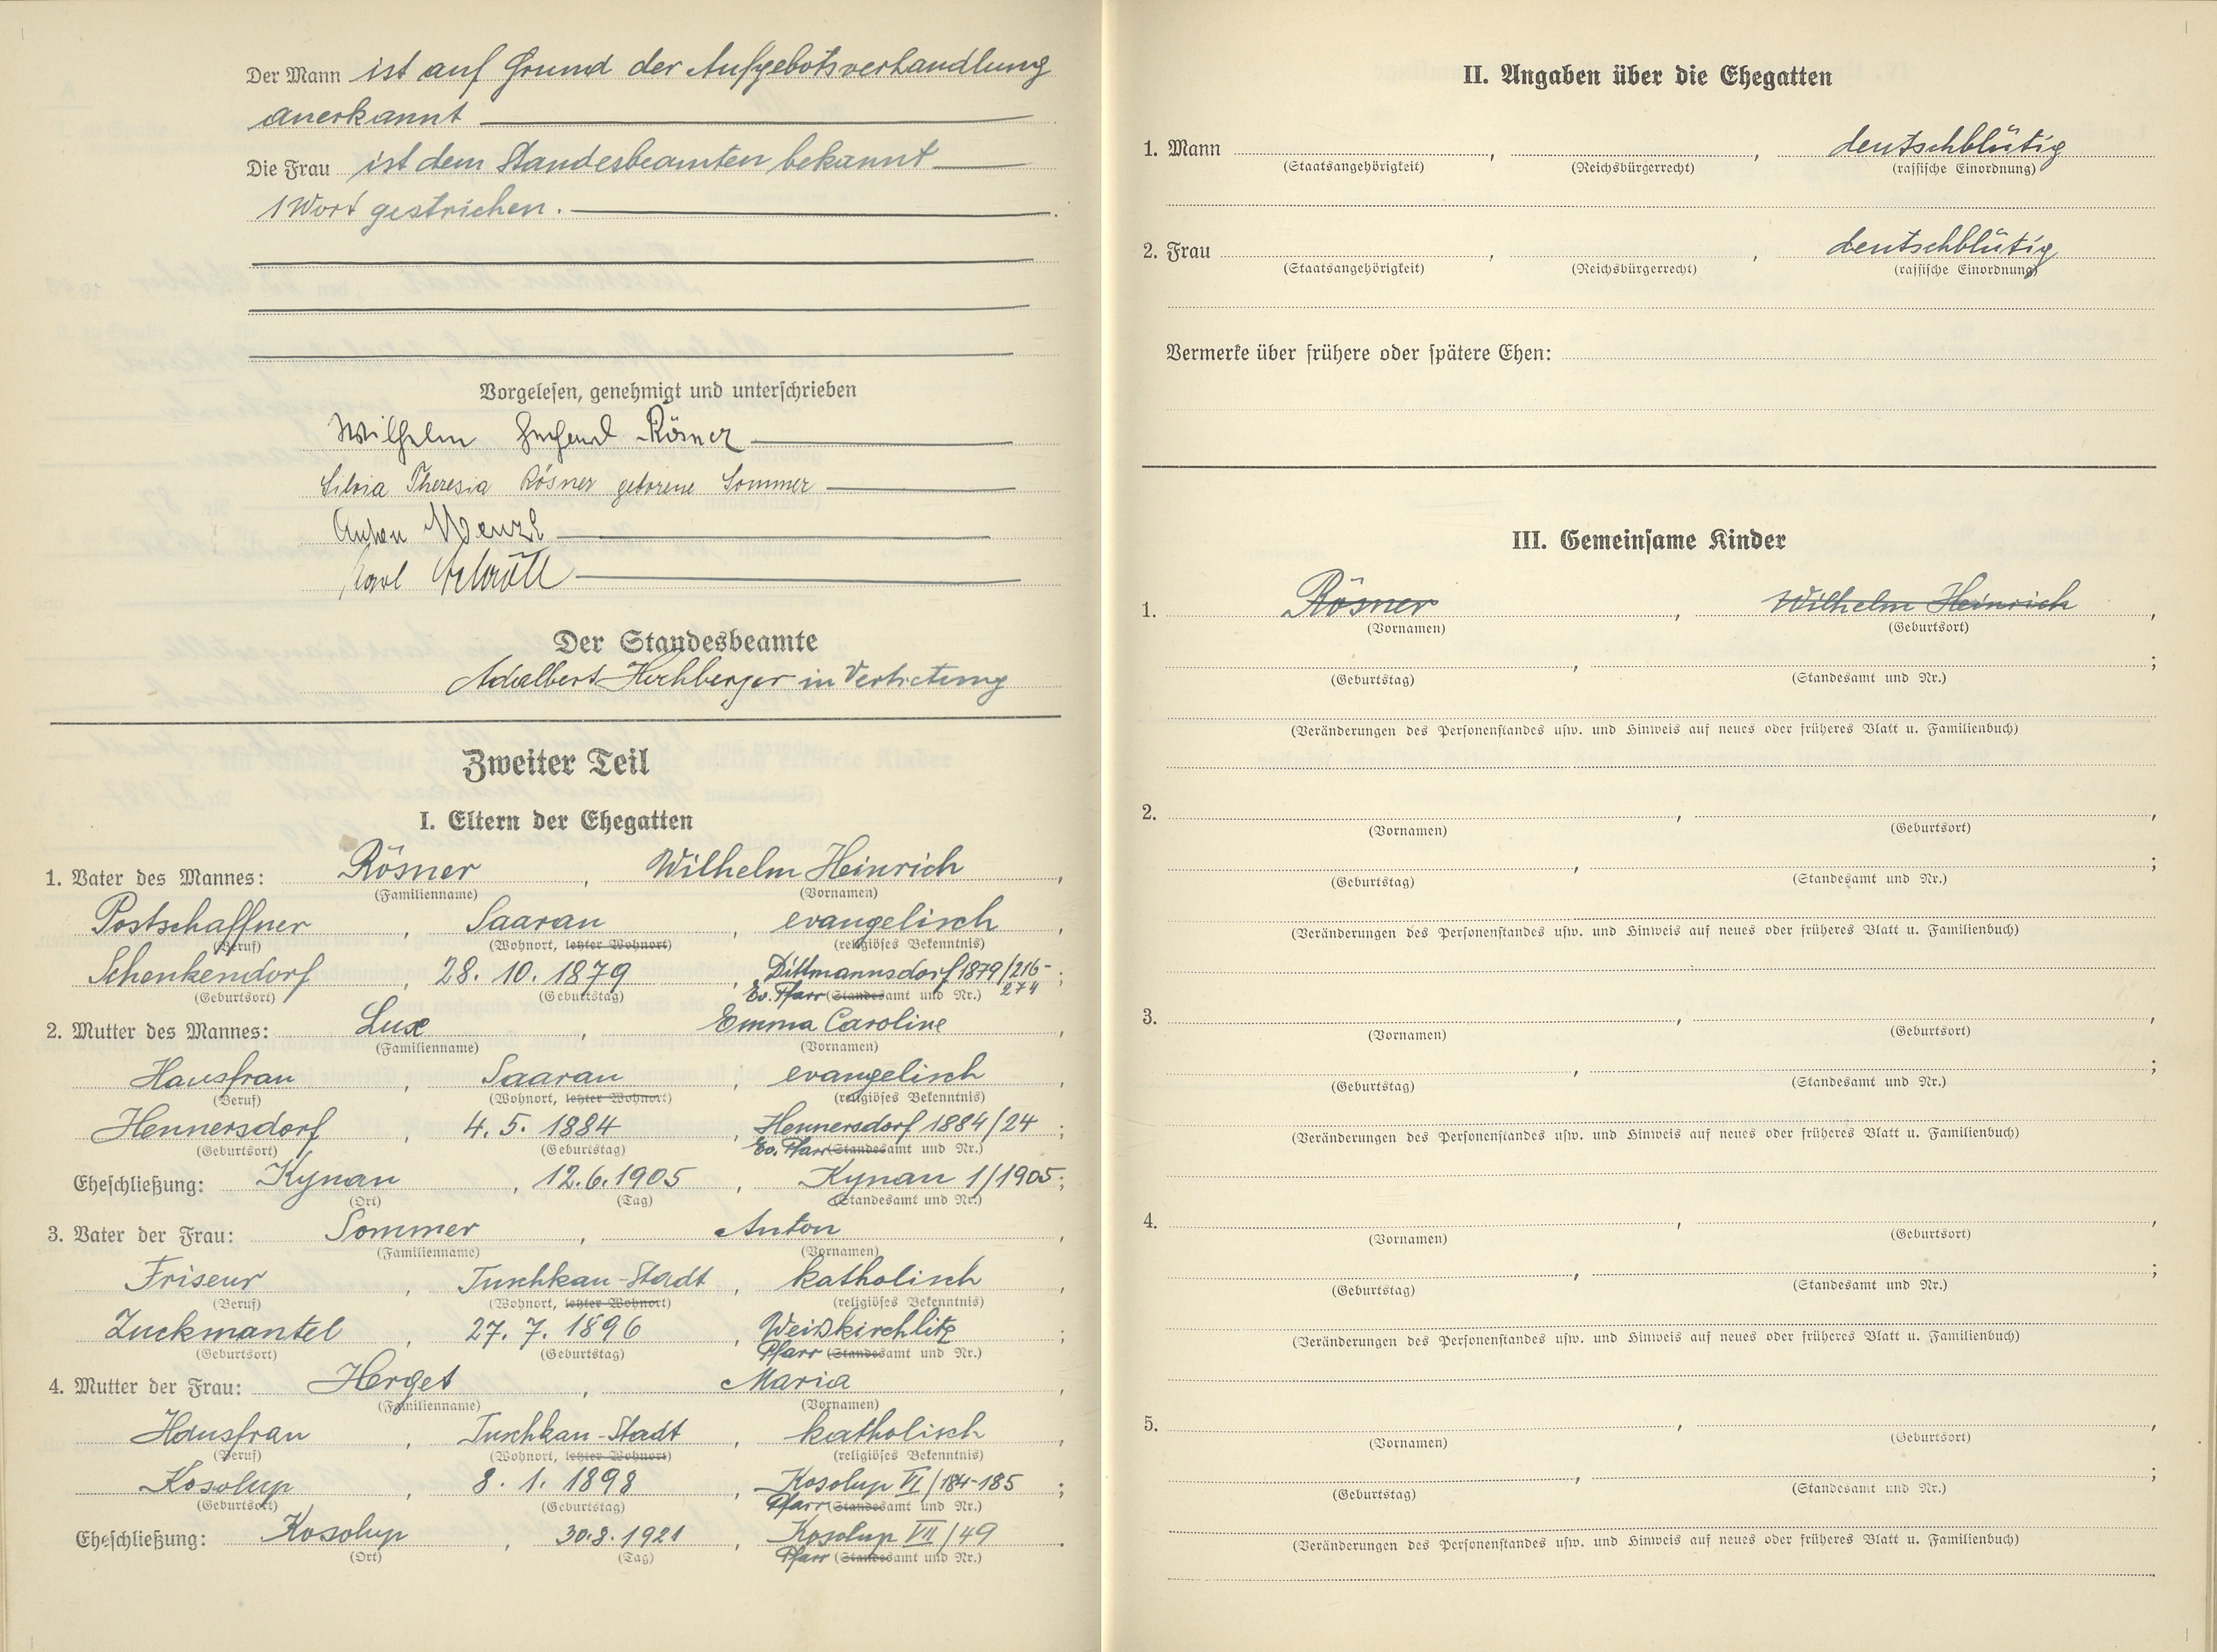 Der Mann ist auf Grund der Aufgebotsverhandlung
anerkannt
Die Frau ist dem Standesbeamten bekannt
1 Wort gestrichen.
Vorgelesen, genehmigt und unterschrieben
Wilhelm Gerhard Rösner
Silvia Theresia Rösner geborene Sommer
Anton Wenzl
Karl
Der Standesbeamte
Adalbert Hochberger in Vertretung
Zweiter Teil
I. Eltern der Ehegatten
1. Vater des Mannes: Rösner, Wilhelm Heinrich,
(Familienname) (Vornamen)
Postschaffner, Saarau, evangelisch,
(Beruf) (Wohnort, letzter Wohnort) (religiöses Bekenntnis)
Schenkendorf, 28. 10. 1879, Dittmannsdorf 1879/216-;
274
(Geburtsort) (Geburtstag) Ev. Pfarr (Standesamt und Nr.)
2. Mutter des Mannes: Lux, Emma Caroline,
(Familienname) (Vornamen)
Hausfrau, Saarau, evangelisch,
(Beruf) (Wohnort, letzter Wohnort) (religiöses Bekenntnis)
Hennersdorf, 4. 5. 1884, Hennersdorf 1884/24;
(Geburtsort) (Geburtstag) Ev. Pfarr (Standesamt und Nr.)
Eheschließung: Kynau, 12. 6. 1905, Kynau 1/1905;
(Ort) (Tag) (Standesamt und Nr.)
3. Vater der Frau: Sommer, Anton,
(Familienname) (Vornamen)
Friseur, Tuschkau-Stadt, katholisch,
(Beruf) (Wohnort, letzter Wohnort) (religiöses Bekenntnis)
Zuckmantel, 27. 7. 1896, Weißkirchlitz;
(Geburtsort) (Geburtstag) Pfarr (Standesamt und Nr.)
4. Mutter der Frau: Herget, Maria,
(Familienname) (Vornamen)
Hausfrau, Tuschkau-Stadt, katholisch,
(Beruf) (Wohnort, letzter Wohnort) (religiöses Bekenntnis)
Kosolup, 8. 1. 1898, Kosolup VI/184-185;
(Geburtsort) (Geburtstag) Pfarr (Standesamt und Nr.)
Eheschließung: Kosolup, 30. 8. 1921, Kosolup VII/49.
(Ort) (Tag) Pfarr (Standesamt und Nr.)
II. Angaben über die Ehegatten
1. Mann , , deutschblütig
(Staatsangehörigkeit) (Reichsbürgerrecht) (rassische Einordnung)
2. Frau , , deutschblütig
(Staatsangehörigkeit) (Reichsbürgerrecht) (rassische Einordnung)
Vermerke über frühere oder spätere Ehen:
III. Gemeinsame Kinder
1. Rösner, Wilhelm Heinrich,
(Vornamen) (Geburtsort)
, ;
(Geburtstag) (Standesamt und Nr.)
(Veränderungen des Personenstandes usw. und Hinweis auf neues oder früheres Blatt u. Familienbuch)
2. , ,
(Vornamen) (Geburtsort)
, ;
(Geburtstag) (Standesamt und Nr.)
(Veränderungen des Personenstandes usw. und Hinweis auf neues oder früheres Blatt u. Familienbuch)
3. , ,
(Vornamen) (Geburtsort)
, ;
(Geburtstag) (Standesamt und Nr.)
(Veränderungen des Personenstandes usw. und Hinweis auf neues oder früheres Blatt u. Familienbuch)
4. , ,
(Vornamen) (Geburtsort)
, ;
(Geburtstag) (Standesamt und Nr.)
(Veränderungen des Personenstandes usw. und Hinweis auf neues oder früheres Blatt u. Familienbuch)
5. , ,
(Vornamen) (Geburtsort)
, ;
(Geburtstag) (Standesamt und Nr.)
(Veränderungen des Personenstandes usw. und Hinweis auf neues oder früheres Blatt u. Familienbuch)